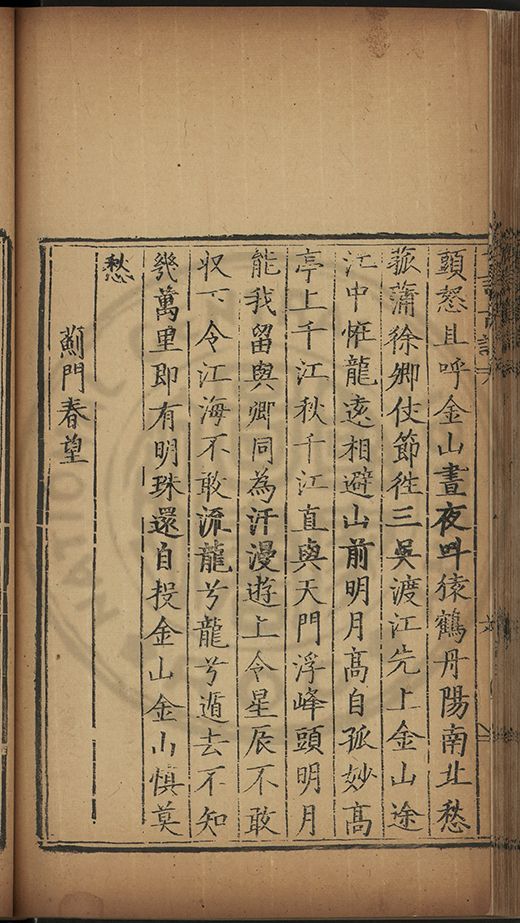 頭怒且呼金山晝夜呌猿鶴丹陽南北愁
菰蒲徐卿使節徃三吳渡江先上金山途
江中恠龍遠相避山前明月髙自孤妙髙
亭上千江秋千江直與天門浮峰頭明月
能我留與卿同為汗漫遊上令星辰不敢
収下令江海不敢流龍兮龍兮遁去不知
幾萬里即有明珠還自投金山金山慎莫
愁
薊門春望